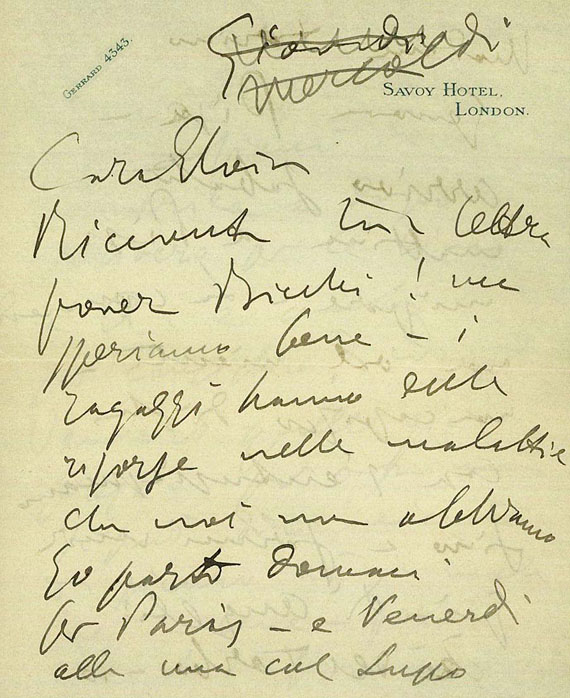 GERRARD 4343.
Giovedì
Mercoldì
SAVOY HOTEL,
LONDON.
Cara Elvira
Ricevuta tua lettera
pover ! ma
speriamo bene – i
ragazzi hanno delle
risorse nelle malattie
che noi non abbiamo
Io parto domani
per Parigi – e Venerdì
alle una col Lupo